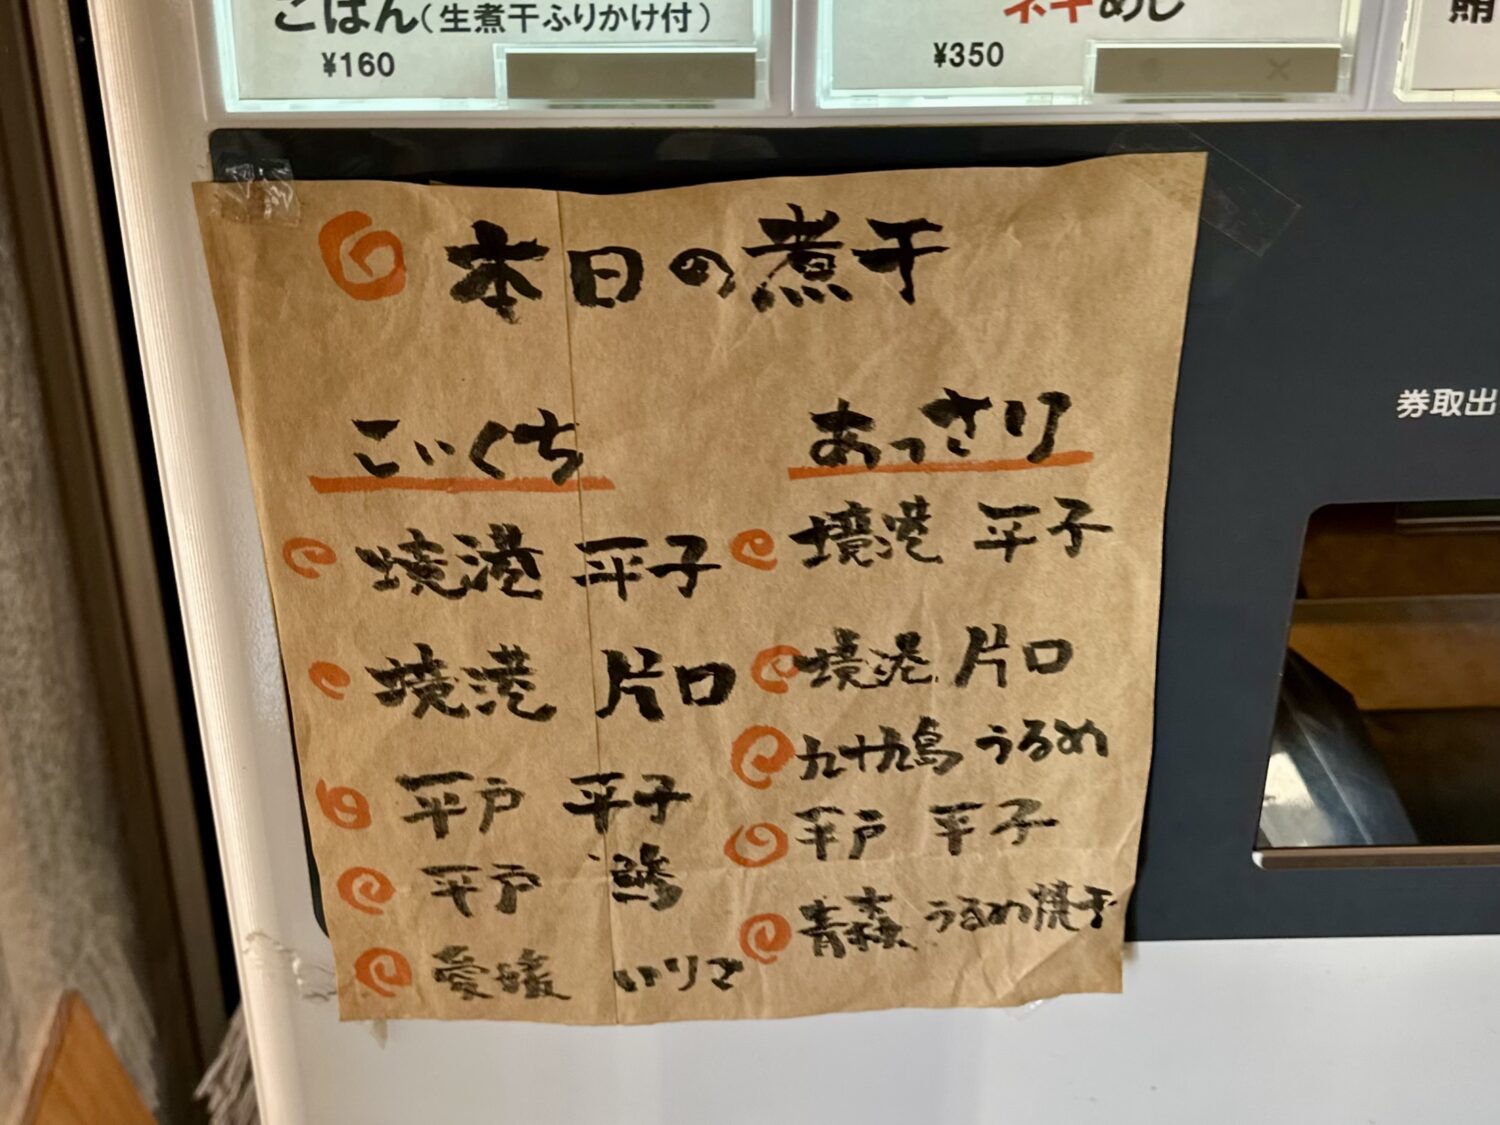 ごはん(生煮干ふりかけ付)
¥160
ネギめし
¥350
券取出
本日の煮干
こいくち
境港 平子
境港 片口
平戸 平子
平戸 鯵
愛媛 いりこ
あっさり
境港 平子
境港 片口
九十九島 うるめ
平戸 平子
青森 うるめ焼干